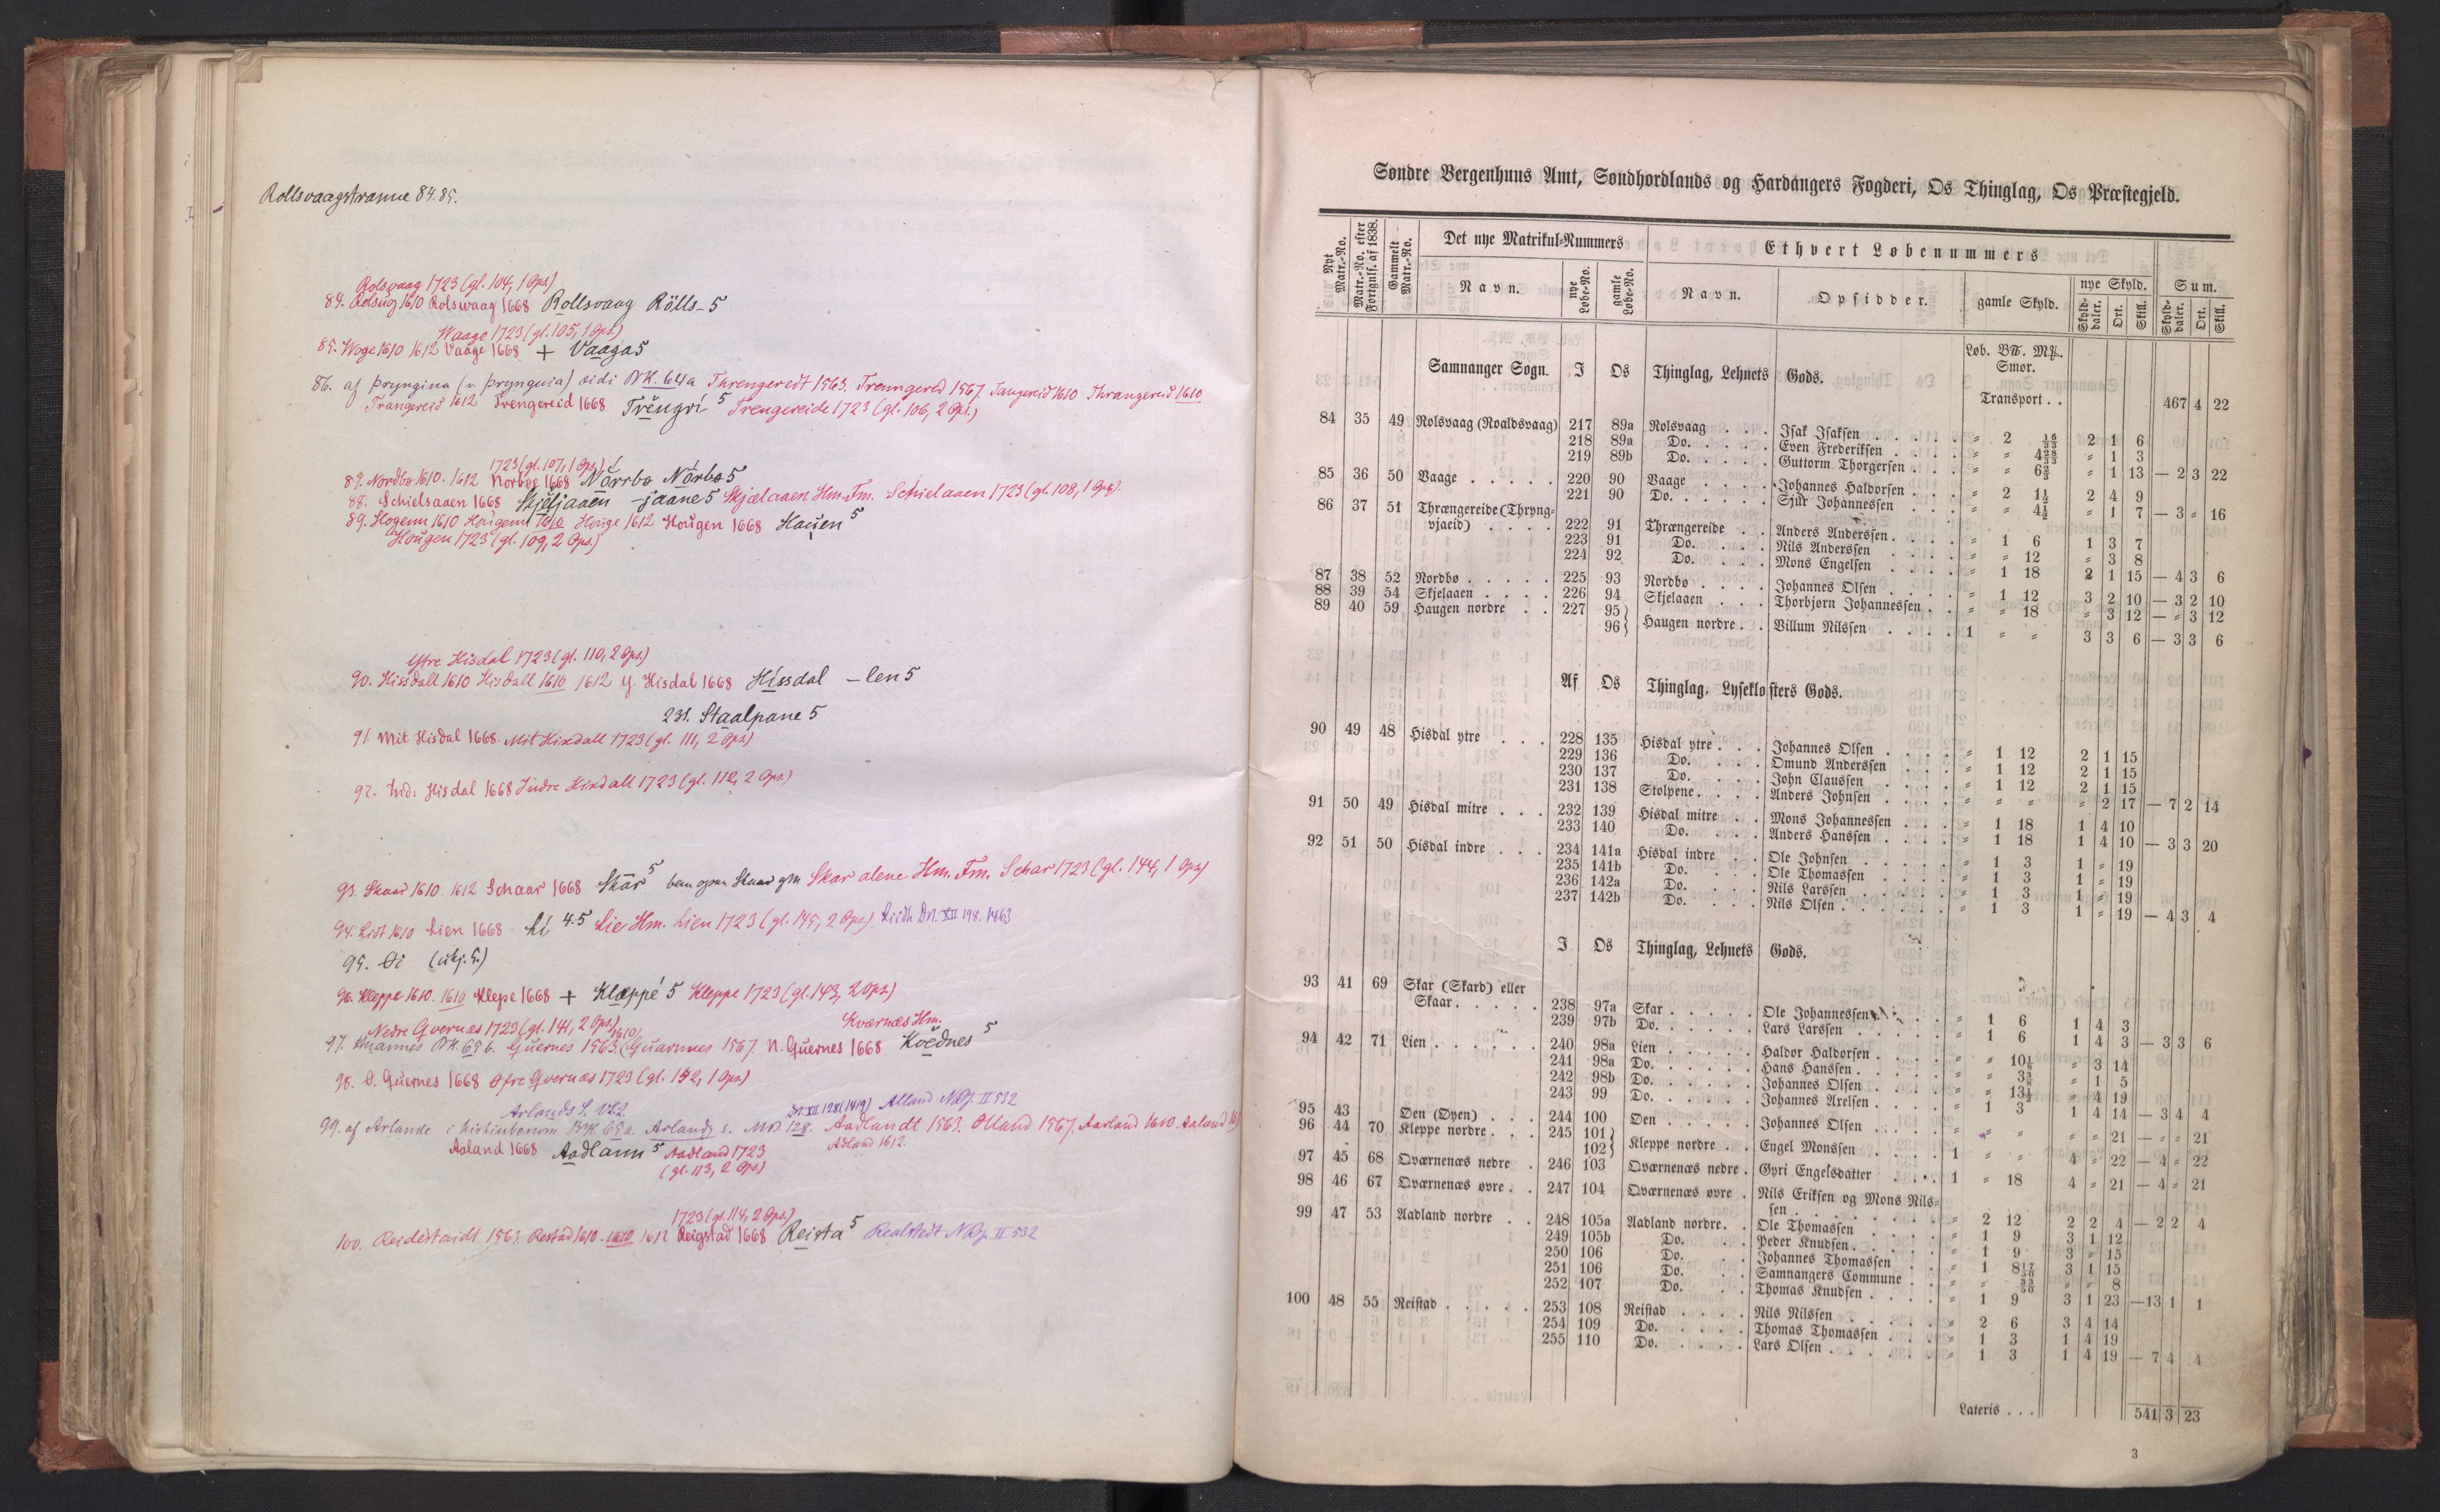 Rollsvaagstranne 84.85.
Rolsvaag 1723 (gl. 104, 1 Ops)
84. Rolsuog 1610 Rolswaag 1668 Rollsvaag Rölls-5
Waage 1723 (gl. 105, 1 Ops.)
85. Woge 1610 1612 Vaage 1668 + Vaaga 5
86. af þryngina (v. þrynguia) æidi BK. 64a Threngeredt 1563. Trenngered 1567. Tangereid 1610 Thrangereid 1610
Trangereid 1612 Trengereid 1668 Trĕngrí 5 Trengereide 1723 (gl. 106, 2 Ops.)
1723 (gl. 107, 1 Ops.)
87. Nordbø 1610. 1612 Norbøe 1668 Nörrbø Nörbø 5
88. Schielsaaen 1668 Skjĕljaaen -jaane 5 Skjælaaen Hm. Fm. Schielaaen 1723 (gl. 108, 1 Ops.)
89. Hogenn 1610 Hougenn 1610 Houge 1612 Hougen 1668 Hauen 5
Hougen 1723 (gl. 109, 2 Ops.)
Yttre Hisdal 1723 (gl. 110, 2 Ops.)
90. Hissdall 1610 Hisdall 1610 1612 Y. Hisdal 1668 Hissdal -len 5
231. Staalpane 5
91. Mit Hisdal 1668. Mit Hisdall 1723 (gl. 111, 2 Ops)
92. Ind: Hisdal 1668 Indre Hisdall 1723 (gl. 112, 2 Ops.)
93. Skaar 1610. 1612 Schaar 1668 Skār 5 Skar alene Hm. Fm. Schar 1723 (gl. 144, 1 Ops)
94. Lidt 1610 Lien 1668 Lí 4.5 Lie Hm. Lien 1723 (gl. 145, 2 Ops.) Liidh Dn. XII 198. 1463
95. Øi (ukj. 5.)
96. Kleppe 1610. 1610 Klepe 1668 + Klæppé 5 Kleppe 1723 (gl. 143, 2 Ops.)
Nedre Qvernæs 1723 (gl. 141, 2 Ops.) Kværnæs Hm.
97. BK. 65b. Guernes 1563. Guarnnes 1567. N. Guernes 1668 Kvĕdnes 5
98. Ø. Guernes 1668 Øfre Qvernæs 1723 (gl. 142, 1 Ops)
Arlands S. Dn. XII 128 (1419) Alland NRJ. II 532
99. af Arlande i kirkiubonom BK. 65a. Arlandz s. 128. Aadlandt 1563. Olland 1567. Aarland 1610. Aaland
Aaland 1668 Aadlann 5 Aadland 1723 Adland 1612.
(gl. 113, 2 Ops)
1723 (gl. 114, 2 Ops)
100. Reidestaidt 1563. Restad 1610. 1610 1612 Reigstad 1668 Reista 5 Realstedt NRJ. II 532
Søndre Bergenhuus Amt, Søndhordlands og Hardangers Fogderi, Os Thinglag, Os Præstegjeld.
Nyt Matr.-No. | Matr.-No. efter Fortegnels. af 1838. | Gammelt Matr.-No. | Det nye Matrikul-Nummers | Ethvert Løbenummers
Navn. | nye Løbe-No. | gamle Løbe-No. | Navn. | Opsidder. | gamle Skyld. | nye Skyld. | Sum.
Skylddaler. | Ort. | Skill. | Skylddaler. | Ort. | Skill.
Samnanger Sogn. I Os Thinglag, Lehnets Gods. Løb. B℔. M℔. Smør.
Transport . . 467 4 22
84 35 49 Rolsvaag (Roaldsvaag) 217 89a Rolsvaag . . . Isak Isaksen . . . . . " 2 16/33 2 1 6
218 89a Do. . . . . Even Frederiksen . . . " " 4 28/33 " 1 3
219 89b Do. . . . . Guttorm Thorgersen . . . " " 6 2/3 " 1 13 — 2 3 22
85 36 50 Vaage . . . . . 220 90 Vaage . . . . Johannes Haldorsen . . . " 2 1 1/2 2 4 9
221 90 Do. . . . . . Sjur Johannessen . . . " " 4 1/2 " 1 7 — 3 " 16
86 37 51 Thrængereide (Thryng-
vjaeid) . . . . 222 91 Thrængereide . . Anders Anderssen . . . . " 1 6 1 3 7
223 91 Do. . . . Nils Anderssen . . . . " " 12 " 3 8
224 92 Do. . . . Mons Engelsen . . . . " 1 18 2 1 15 — 4 3 6
87 38 52 Nordbø . . . . . 225 93 Nordbø . . . . Johannes Olsen . . . . " 1 12 3 2 10 — 3 2 10
88 39 54 Skjelaaen . . . . 226 94 Skjelaaen . . . Thorbjørn Johannessen . . " " 18 " 3 12 — " 3 12
89 40 59 Haugen nordre . . 227 95}
96} Haugen nordre . . Villum Nilssen . . . . 1 " " 3 3 6 — 3 3 6
Af Os Thinglag, Lyseklosters Gods.
90 49 48 Hisdal ytre . . . 228 135 Hisdal ytre . . . Johannes Olsen . . . . " 1 12 2 1 15
229 136 Do. . . . Omund Anderssen . . . " 1 12 2 1 15
230 137 Do. . . . John Claussen . . . . " 1 12 2 1 15
231 138 Stolpene . . . . Anders Johnsen . . . . " " " " 2 17 — 7 2 14
91 50 49 Hisdal mitre . . . 232 139 Hisdal mitre . . Mons Johannessen . . . " 1 18 1 4 10
233 140 Do. . . . Anders Hanssen . . . . " 1 18 1 4 10 — 3 3 20
92 51 50 Hisdal indre . . . 234 141a Hisdal indre . . Ole Johnsen . . . . . " 1 3 1 " 19
235 141b Do. . . . Ole Thomassen . . . . " 1 3 1 " 19
236 142a Do. . . . Nils Larssen . . . . . " 1 3 1 " 19
237 142b Do. . . . Nils Olsen . . . . . . " 1 3 1 " 19 — 4 3 4
I Os Thinglag, Lehnets Gods.
93 41 69 Skar (Skard) eller
Skaar . . . . . 238 97a Skar . . . . . Ole Johannessen . . . " 1 6 1 4 3
239 97b Do. . . . . . Lars Larssen . . . . . " 1 6 1 4 3 — 3 3 6
94 42 71 Lien . . . . . . 240 98a Lien . . . . . Haldor Haldorsen . . . . " " 10 1/8 " 3 14
241 98a Do. . . . . . Hans Hanssen . . . . . " " 3 3/8 " 1 5
242 98b Do. . . . . . Johannes Olsen . . . . " " 13 1/4 " 4 19
243 99 Do. . . . . . Johannes Axelsen . . . . " 1 3 1 4 14 — 3 4 4
95 43 Øen (Øyen) . . . 244 100 Øen . . . . . Johannes Olsen . . . . " " " " " 21 — " " 21
96 44 70 Kleppe nordre . . . 245 101}
102} Kleppe nordre . . Engel Monssen . . . . 1 " " 4 " 22 — 4 " 22
97 45 68 Qværnenæs nedre . 246 103 Qværnenæs nedre . Gyri Engelsdatter . . . . 1 " 18 4 " 21 — 4 " 21
98 46 67 Qværnenæs øvre . . 247 104 Qværnenæs øvre . Nils Eriksen og Mons Nils-
sen . . . . . . . . " 2 12 2 2 4 — 2 2 4
99 47 53 Aadland nordre . . 248 105a Aadland nordre . . Ole Thomassen . . . . " 1 9 3 1 12
249 105b Do. . . Peder Knudsen . . . . . " 1 9 3 " 15
250 106 Do. . . Johannes Thomassen . . " 1 8 17/50 3 1 15
251 106 Do. . . Samnangers Commune . . " " 33/50 " " 8
252 107 Do. . . Thomas Knudsen . . . . " 1 9 3 1 23 — 13 1 1
100 48 55 Reistad . . . . . 253 108 Reistad . . . . Nils Nilssen . . . . . " 2 6 3 4 14
254 109 Do. . . . . Thomas Thomassen . . . " 1 3 1 4 19
255 110 Do. . . . . Lars Olsen . . . . . . " 1 3 1 4 19 — 7 4 4
Lateris . . . 541 3 23
3